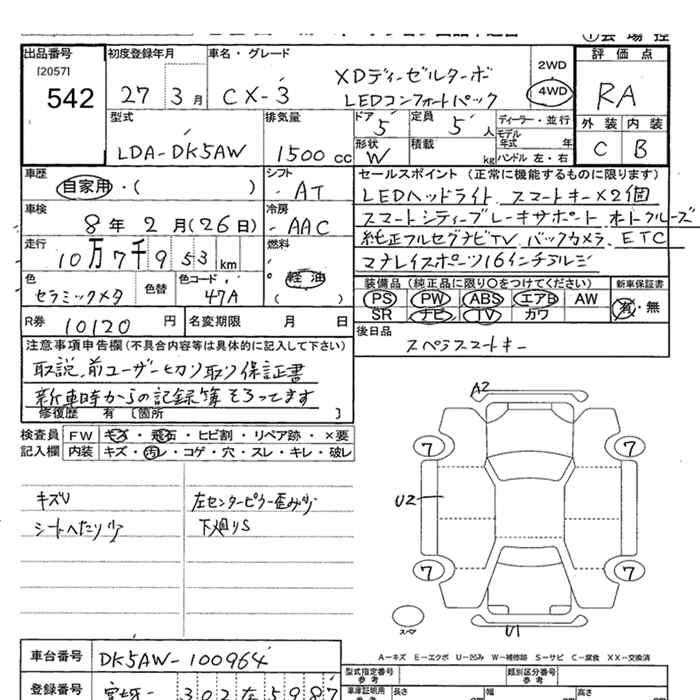 出品番号
[2057]
542
初度登録年月
27 3月
車名・グレード
CX-3
XDディーゼルターボ
LEDコンフォートパック
2WD
4WD
評価点
RA
外装 内装
C B
型式
LDA-DK5AW
排気量
1500 cc
ドア
5
定員
5人
形状
W
積載
kg
ディーラー・並行
モデル年式 年
ハンドル 左・右
車歴
自家用・( )
シフト
AT
車検
8年2月(26日)
冷房
AAC
走行
10万7千953km
燃料
軽油
( )
色
セラミックメタ
色替
色コード
47A
R券 10120円
名変期限 月 日
セールスポイント(正常に機能するものに限ります)
LEDヘッドライト スマートキー×2個
スマートシティブレーキサポート オートクルーズ
純正フルセグナビTV バックカメラ ETC
マナレイスポーツ16インチアルミ
装備品(純正品に限り○をつけてください)
新車保証書
PS PW ABS エアB AW
SR ナビ TV カワ
有・無
後日品
スペアスマートキー
注意事項申告欄(不具合内容等は具体的に記入して下さい)
取説、前ユーザー切り取り保証書
新車時からの記録簿そろってます
修復歴 有 〔箇所 〕
検査員記入欄
FW キズ・飛石・ヒビ割・リペア跡・×要
内装 キズ・汚レ・コゲ・穴・スレ・キレ・破レ
キズU
シートへたり少
左センターピラー歪み少
下廻りS
A2
7
7
U2
7
7
スペア
U1
A-キズ E-エクボ U-凹み W-補修跡 S-サビ C-腐食 XX-交換済
車台番号
DK5AW-100964
登録番号
宮城 302 5987
型式指定番号
参考
類別区分番号
参考
車庫証明用
参考
長さ
幅
高さ